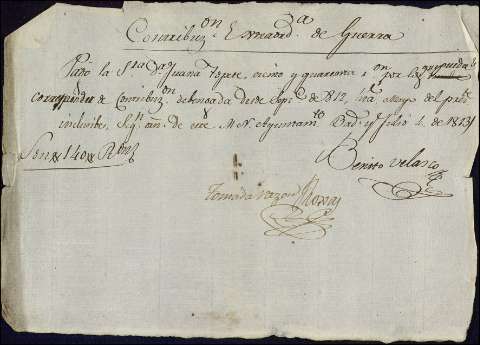 Contribuz.on Extraord.a de Guerra
Pagó la S.ra D.a Juana Topete, ciento y quarenta r.on por lo q.
corresponder de Contribuz.on debengada desde Sep.e de 1812, hta Mayo del pres.te
inclusibes, Seg.n de este M. N. Ayuntam.to y Julio 4. de 1813
Son 140 R.on
Benito Velasco
Tomada razon